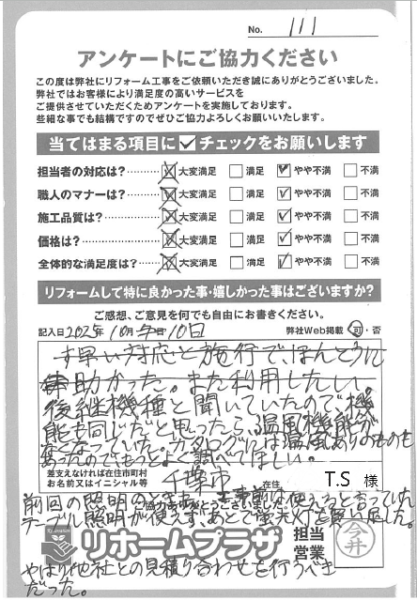 No. 111
アンケートにご協力ください
この度は弊社にリフォーム工事をご依頼いただき誠にありがとうございました。
弊社ではお客様により満足度の高いサービスを
ご提供させていただくためアンケートを実施しております。
些細な事でも結構ですのでぜひご協力よろしくお願いいたします。
当てはまる項目に✓チェックをお願いします
担当者の対応は?…… 大変満足 満足 やや不満 不満
職人のマナーは?…… 大変満足 満足 やや不満 不満
施工品質は?…… 大変満足 満足 やや不満 不満
価格は?…… 大変満足 満足 やや不満 不満
全体的な満足度は?… 大変満足 満足 やや不満 不満
リフォームして特に良かった事・嬉しかった事はございますか?
ご感想、ご意見を何でも自由にお書きください。
記入日 2025年10月 10日 弊社Web掲載 可・否
す早い対応と施行で、ほんとうに
助かった。また利用したしい。
後継機種と聞いていたので"機
能も同じだと思ったら、温風機能が
なくなっていた。カタログには温風ありのものも
あったのでもっとよく調べてほしい。
差支えなければ在住市町村
お名前又はイニシャル等
千葉市 在住 T.S 様
前回の照明のときも、工事前は使えると言っていた
テーブル照明が使えず、あとで蛍光灯を買い足した。
リホームプラザ
担当
営業
今井
やはり他社との見積り合わせを行うべき
だった。